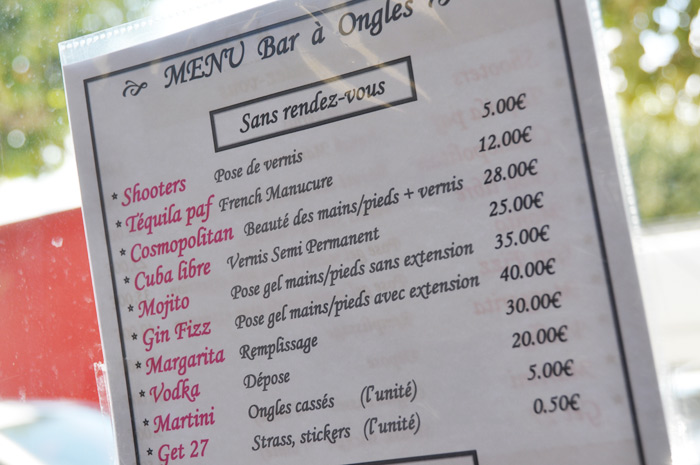 MENU Bar à Ongles
Sans rendez-vous
* Shooters Pose de vernis 5.00€
* Téquila paf French Manucure 12.00€
* Cosmopolitan Beauté des mains/pieds + vernis 28.00€
* Cuba libre Vernis Semi Permanent 25.00€
* Mojito Pose gel mains/pieds sans extension 35.00€
* Gin Fizz Pose gel mains/pieds avec extension 40.00€
* Margarita Remplissage 30.00€
* Vodka Dépose 20.00€
* Martini Ongles cassés (l'unité) 5.00€
* Get 27 Strass, stickers (l'unité) 0.50€